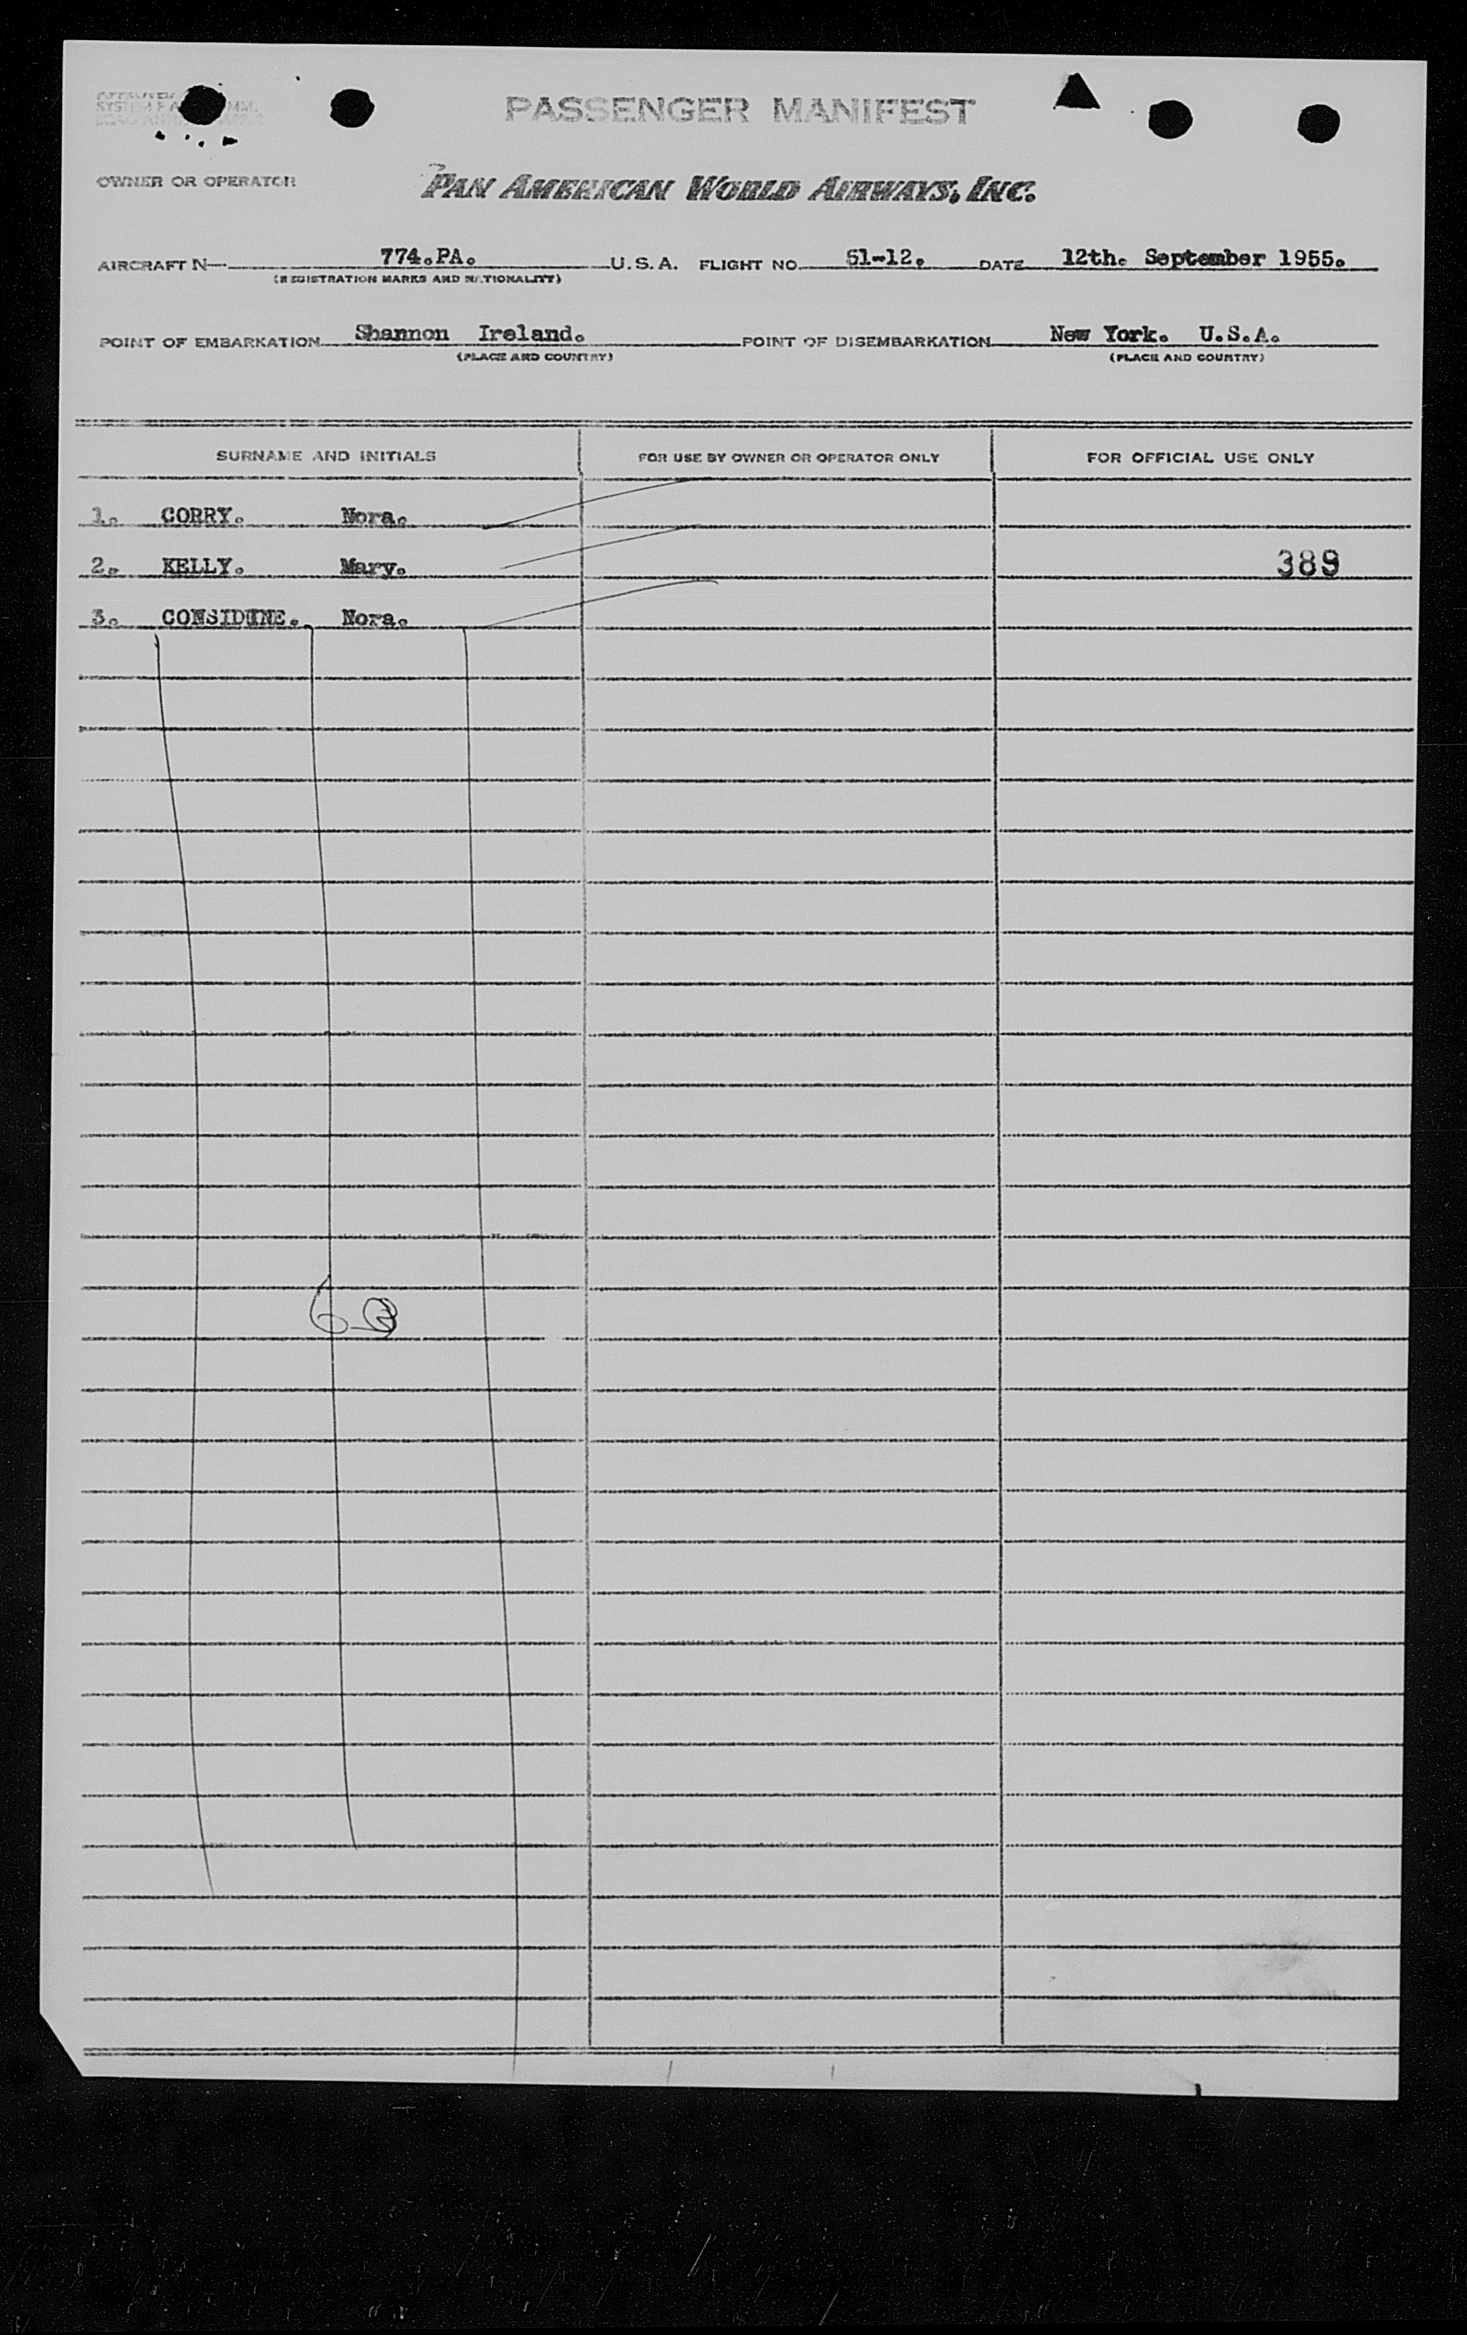 PASSENGER MANIFEST
OWNER OR OPERATOR
PAN AMERICAN WORLD AIRWAYS, INC.
AIRCRAFT N— 774.PA. U.S.A. FLIGHT NO. 61-12. DATE 12th. September 1955.
(REGISTRATION MARKS AND NATIONALITY)
POINT OF EMBARKATION Shannon Ireland. POINT OF DISEMBARKATION New York. U.S.A.
(PLACE AND COUNTRY) (PLACE AND COUNTRY)
SURNAME AND INITIALS FOR USE BY OWNER OR OPERATOR ONLY FOR OFFICIAL USE ONLY
1. CORRY. Nora.
2. KELLY. Mary. 389
3. CONSIDINE. Nora.